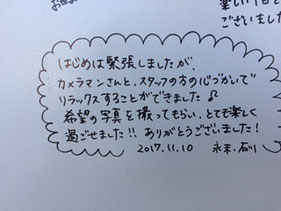 はじめは緊張しましたが、
カメラマンさんと、スタッフの方の心づかいで
リラックスすることができました♪
希望の写真を撮ってもらい、とても楽しく
過ごせました!!ありがとうございました!
2017.11.10 永末、石川
ございました